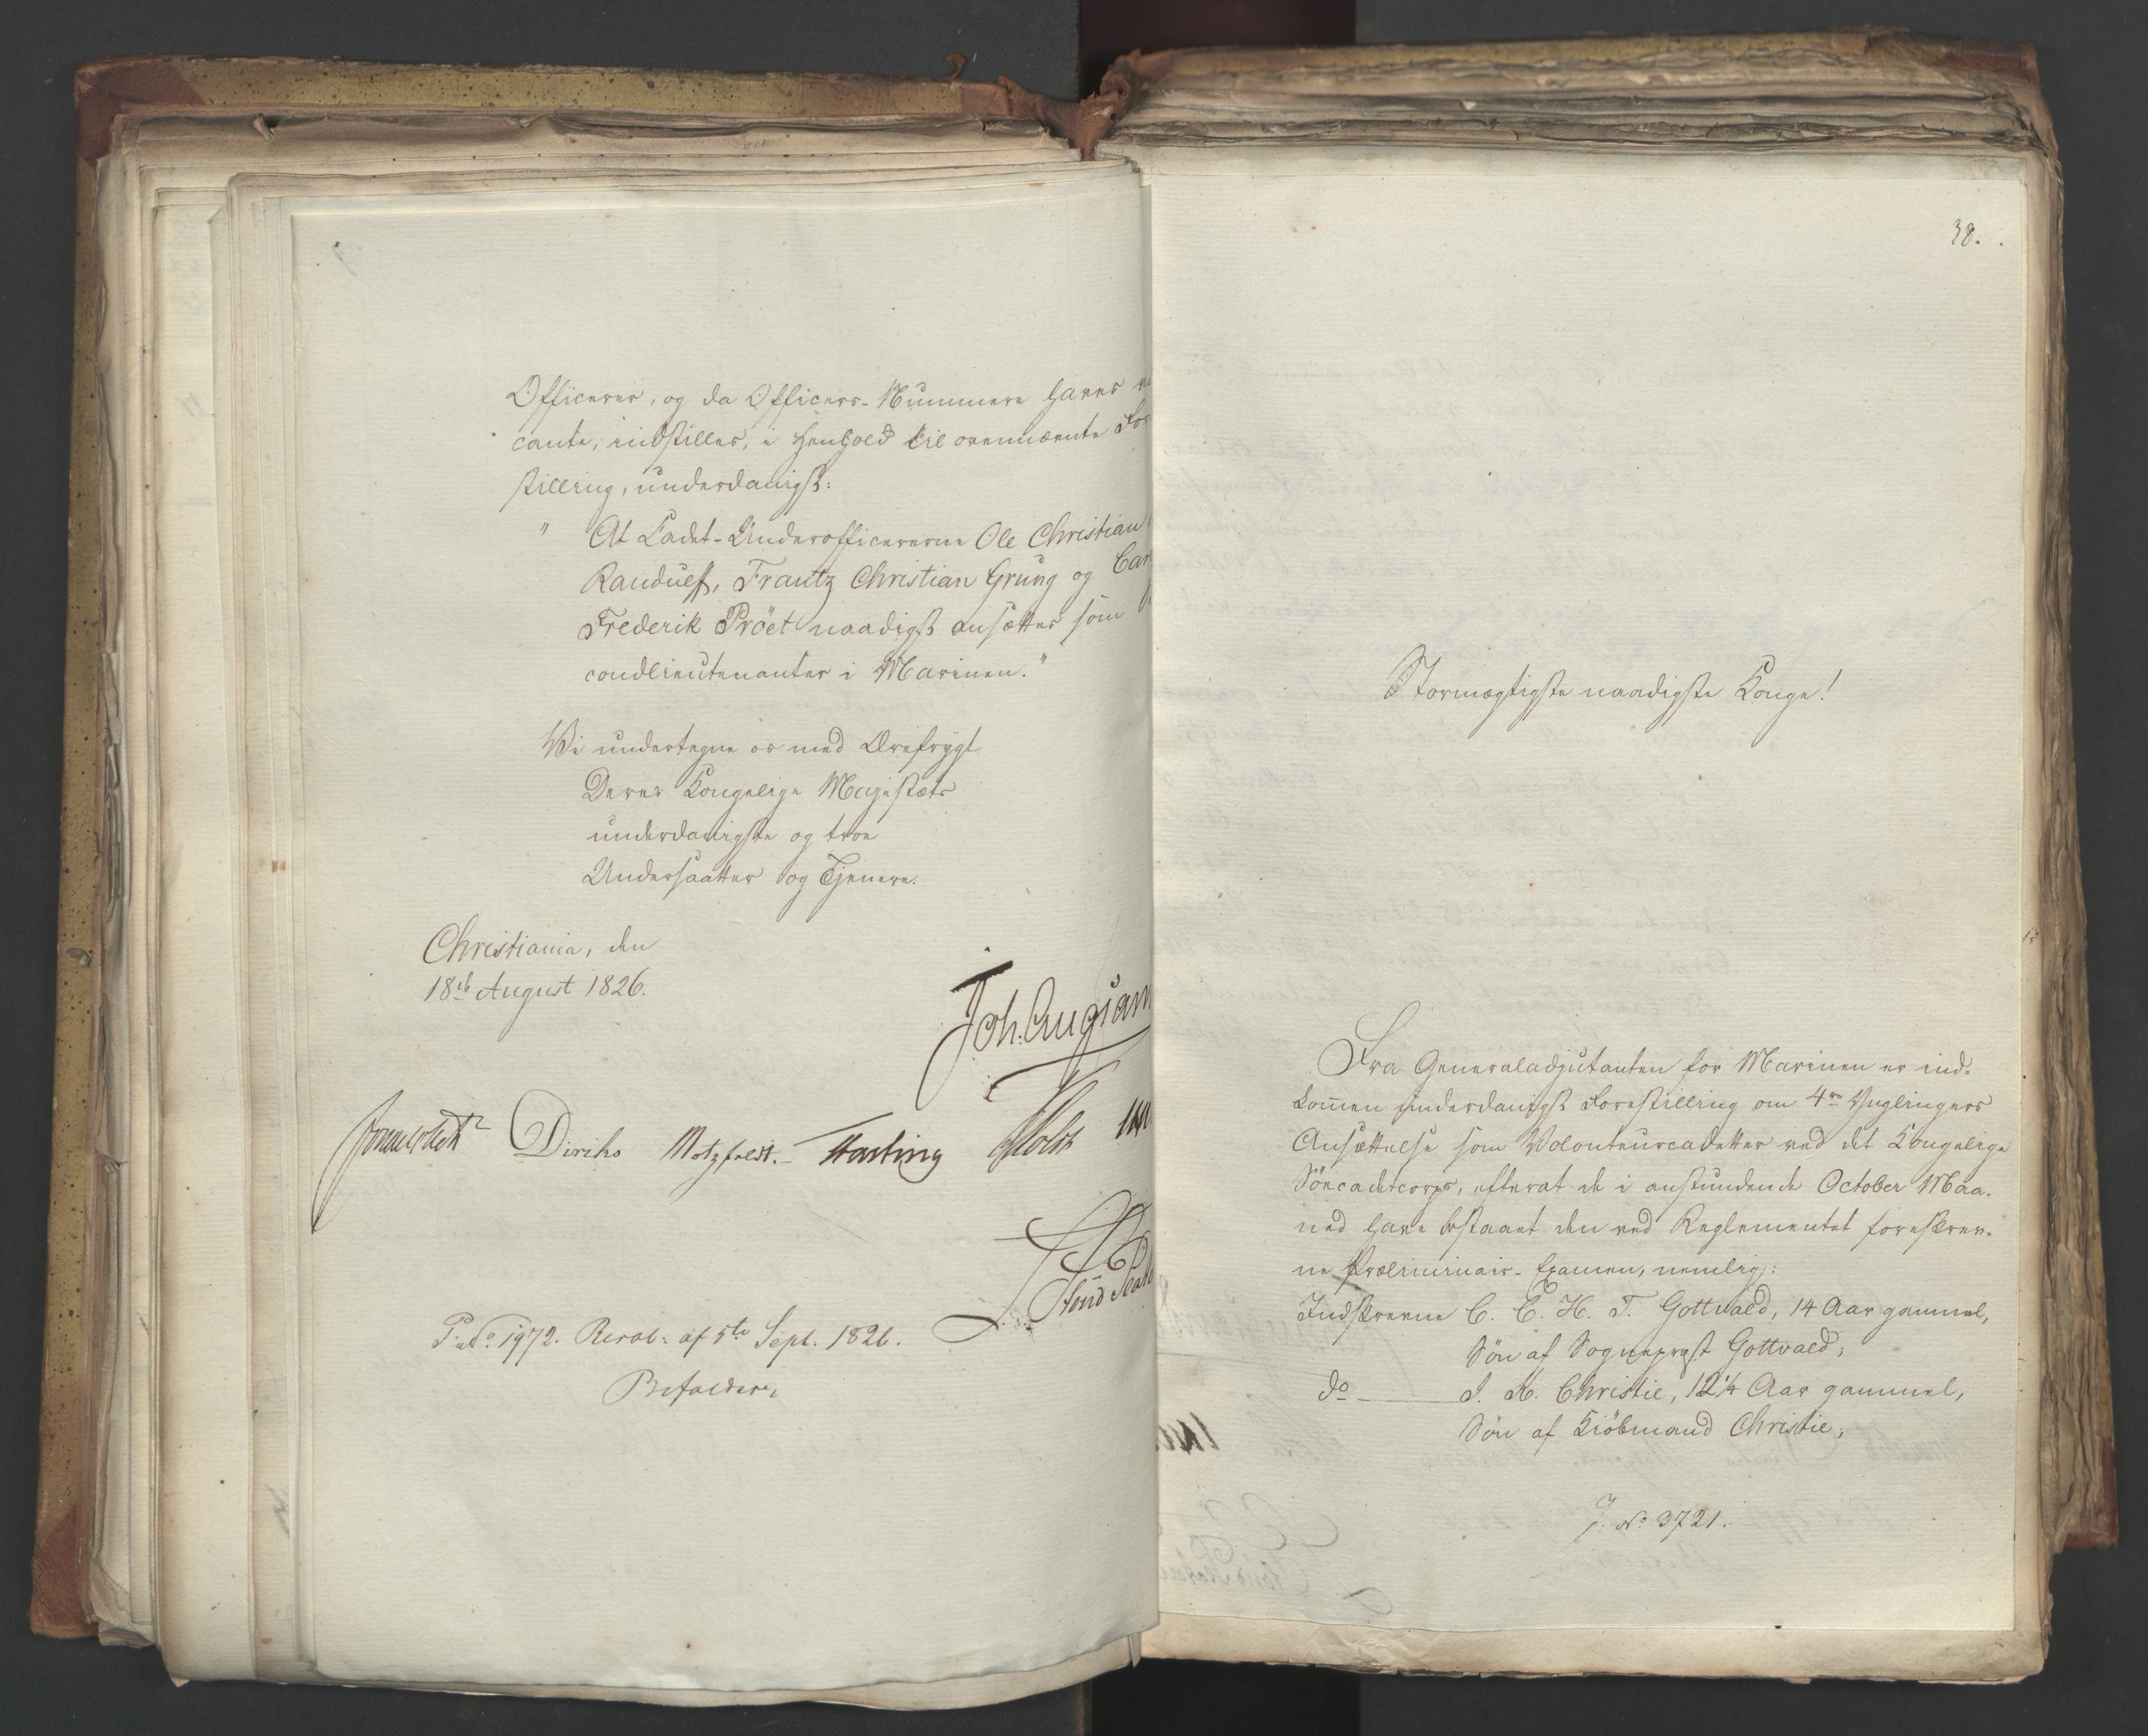 Officerer, og da Officers-Nummere haves va
cante, indstilles, i Henhold til ovennævnte For
stilling, underdanigst:
" At Cadet-Underofficererne Ole Christian
Randulff, Frantz Christian Grung og Carl
Frederik Pröet naadigst ansættes som
condlieutenanter i Marinen."
Vi undertegne os med Ærefrygt
Deres Kongelige Majestæts
underdanigste og troe
Undersaatter og Tjenere.
Christiania, den
18de August 1826.
Joh. Aug
Diriks Motzfeldt. Fasting Holst
P. No. 1972. Resol: af 5te Sept. 1826.
Bifaldes
38.
Stormægtigste naadigste Konge!
Fra Generaladjutanten for Marinen er ind-
kommen underdanigst Forestilling om 4re Ynglingers
Ansættelse som Volonteurcadetter ved det Kongelige
Söecadetcorps, efterat de i anstundende October Maa-
ned have bestaaet den ved Reglementet foreskrev-
ne Præliminair-Examen, nemlig:
Indskrevne C. C. H. T. Gottwald, 14 Aar gammel,
Sön af Sognepræst Gottwald;
do J. K. Christie, 12 1/4 Aar gammel,
Sön af Kiöbmand Christie;
J. No 3721.